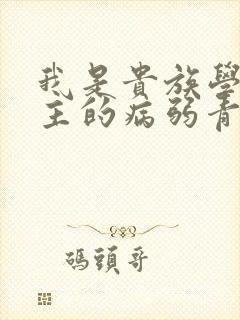 我是貴族學
主的病弱青
碼頭哥